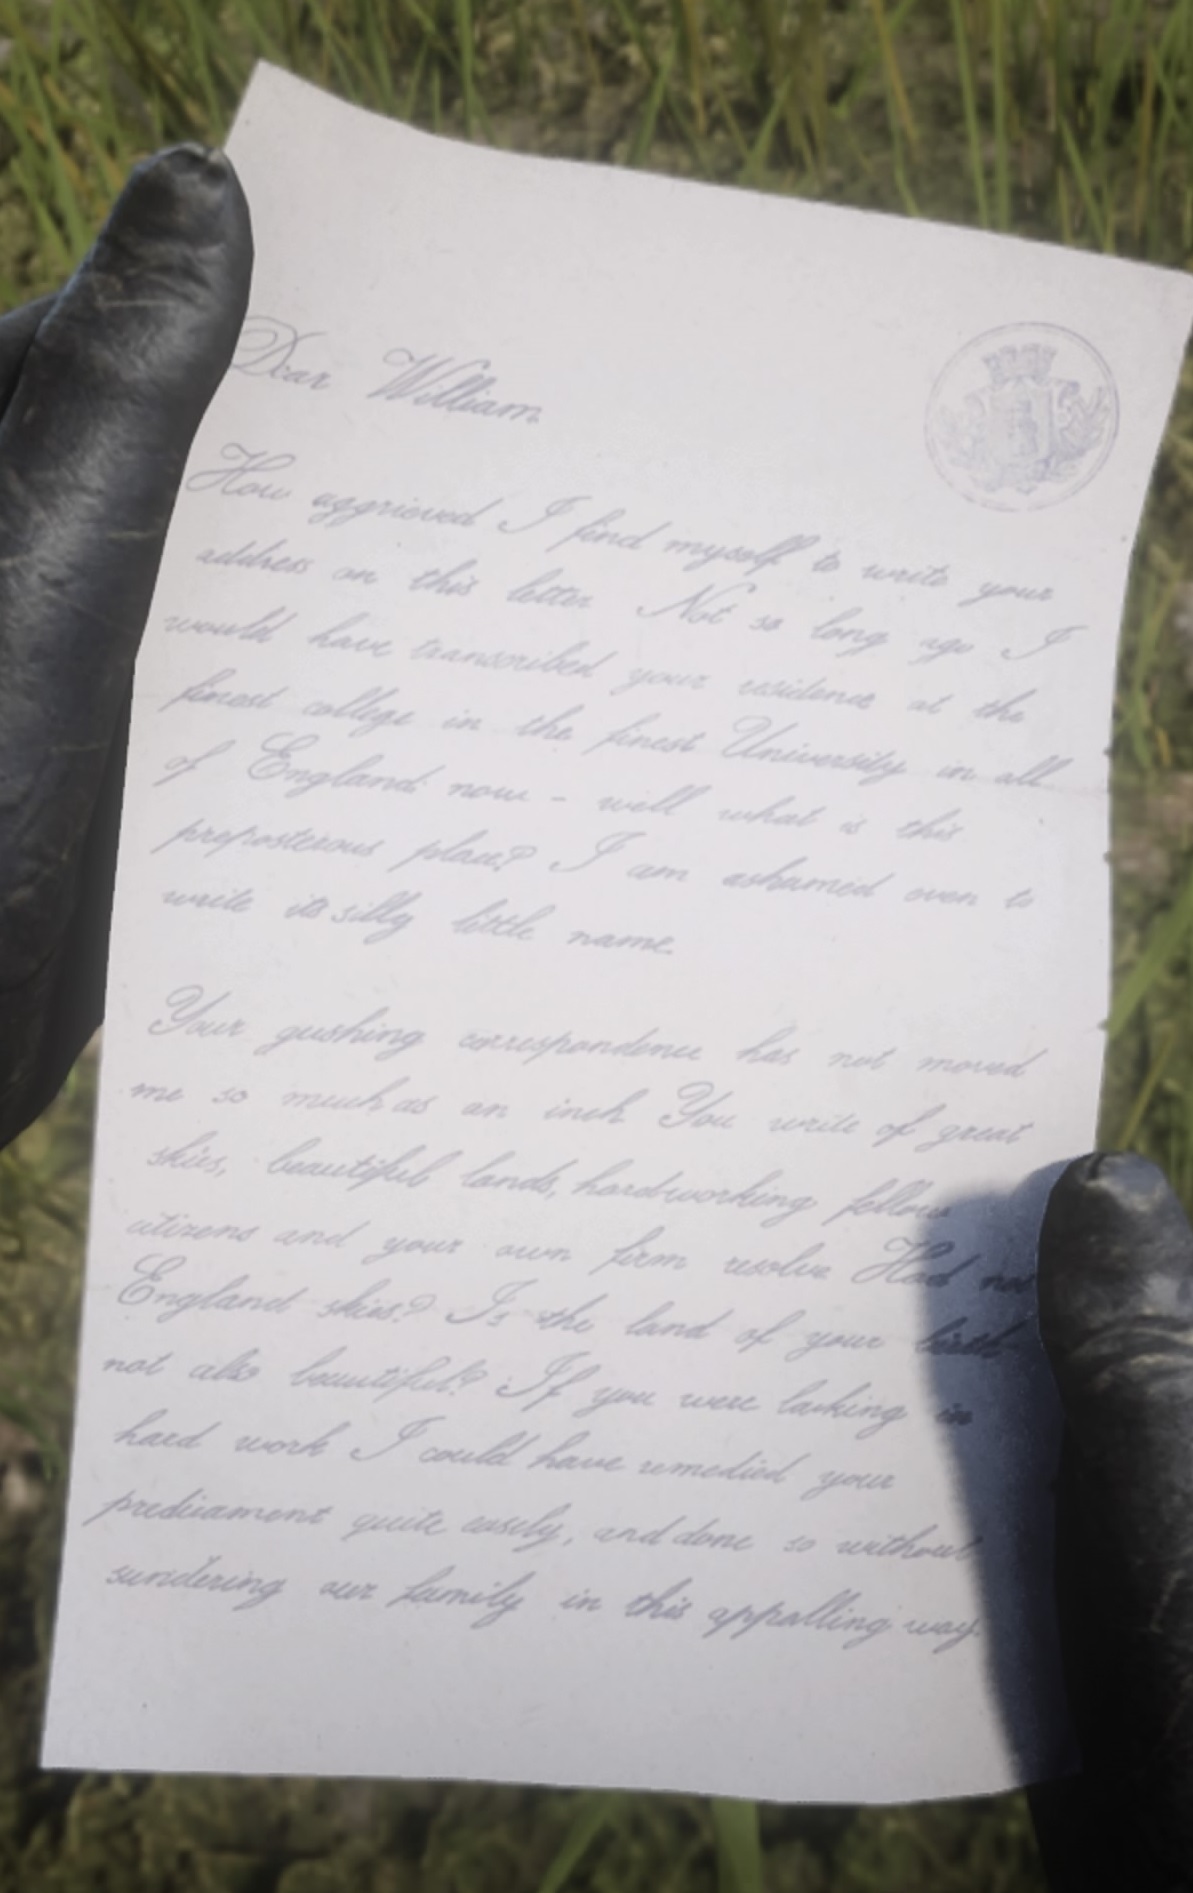 Dear William
How aggrieved I find myself to write your
address on this letter Not so long ago I
would have transcribed your residence at the
finest college in the finest University in all
of England now - well what is this
preposterous place? I am ashamed even to
write its silly little name.
Your gushing correspondence has not moved
me so much as an inch You write of great
skies, beautiful lands, hardworking fellow
citizens and your own firm resolve Had not
England skies? Is the land of your birth
not also beautiful? If you were lacking in
hard work I could have remedied your
predicament quite easily, and done so without
sundering our family in this appalling way.